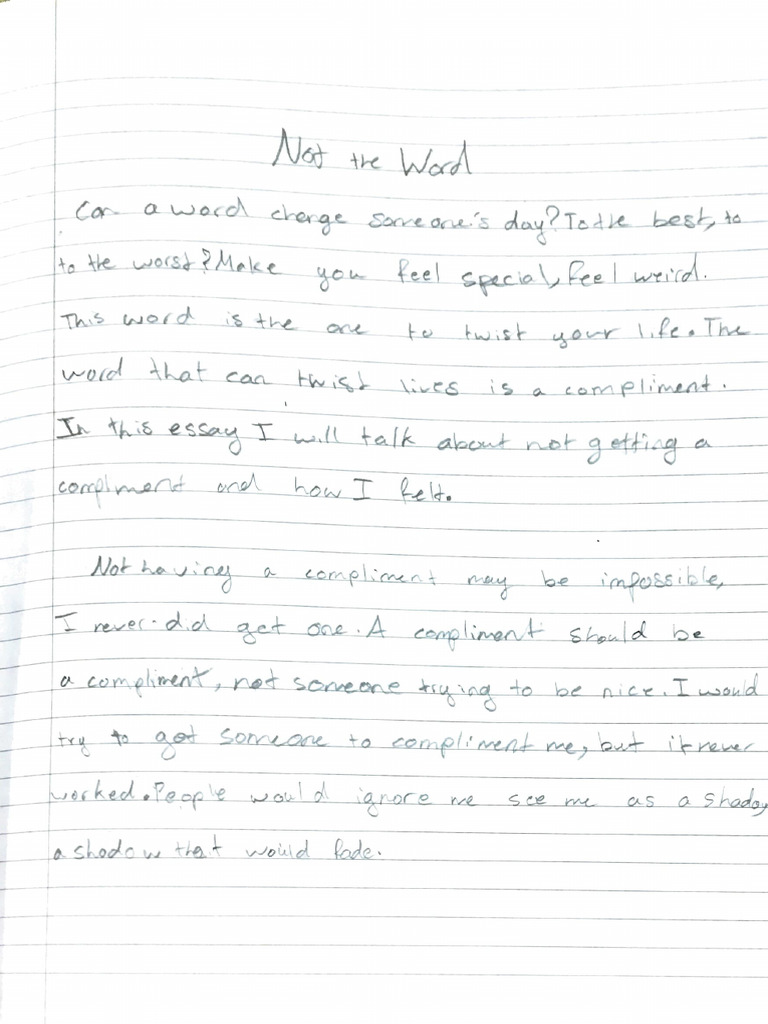 Not the Word
Can a word change someone's day? To the best, to
to the worst? Make you feel special, feel weird.
This word is the one to twist your life. The
word that can twist lives is a compliment.
In this essay I will talk about not getting a
compliment and how I felt.
Not having a compliment may be impossible,
I never did get one. A compliment should be
a compliment, not someone trying to be nice. I would
try to get someone to compliment me, but it never
worked. People would ignore me see me as a shadow,
a shadow that would fade.